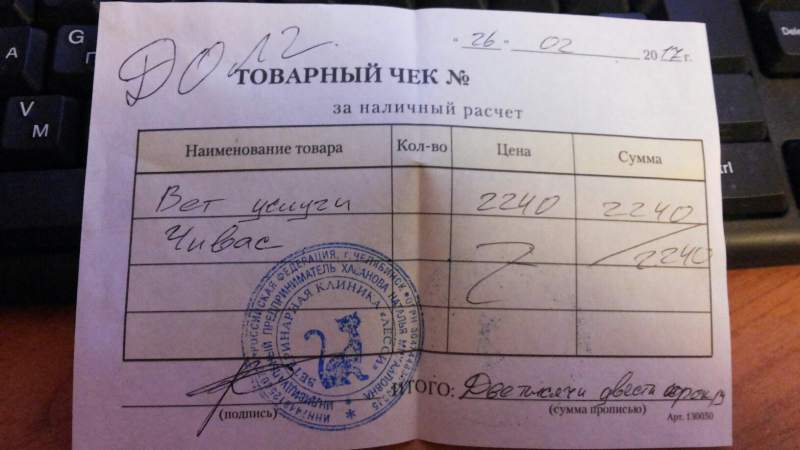 ДОЛГ.
"26" 02 2017 г.
ТОВАРНЫЙ ЧЕК №
за наличный расчет
Наименование товара Кол-во Цена Сумма
Вет услуги 2240 2240
Чивас 2240
РОССИЙСКАЯ ФЕДЕРАЦИЯ, г. ЧЕЛЯБИНСК
ИНДИВИДУАЛЬНЫЙ ПРЕДПРИНИМАТЕЛЬ ХАСАНОВА НАТАЛЬЯ
ВЕТЕРИНАРНАЯ КЛИНИКА «ЛЕССИ»
ИТОГО: Две тысячи двести сорок
(подпись) (сумма прописью)
Арт. 130050
G
П
A
V
М
Delete
Ctrl